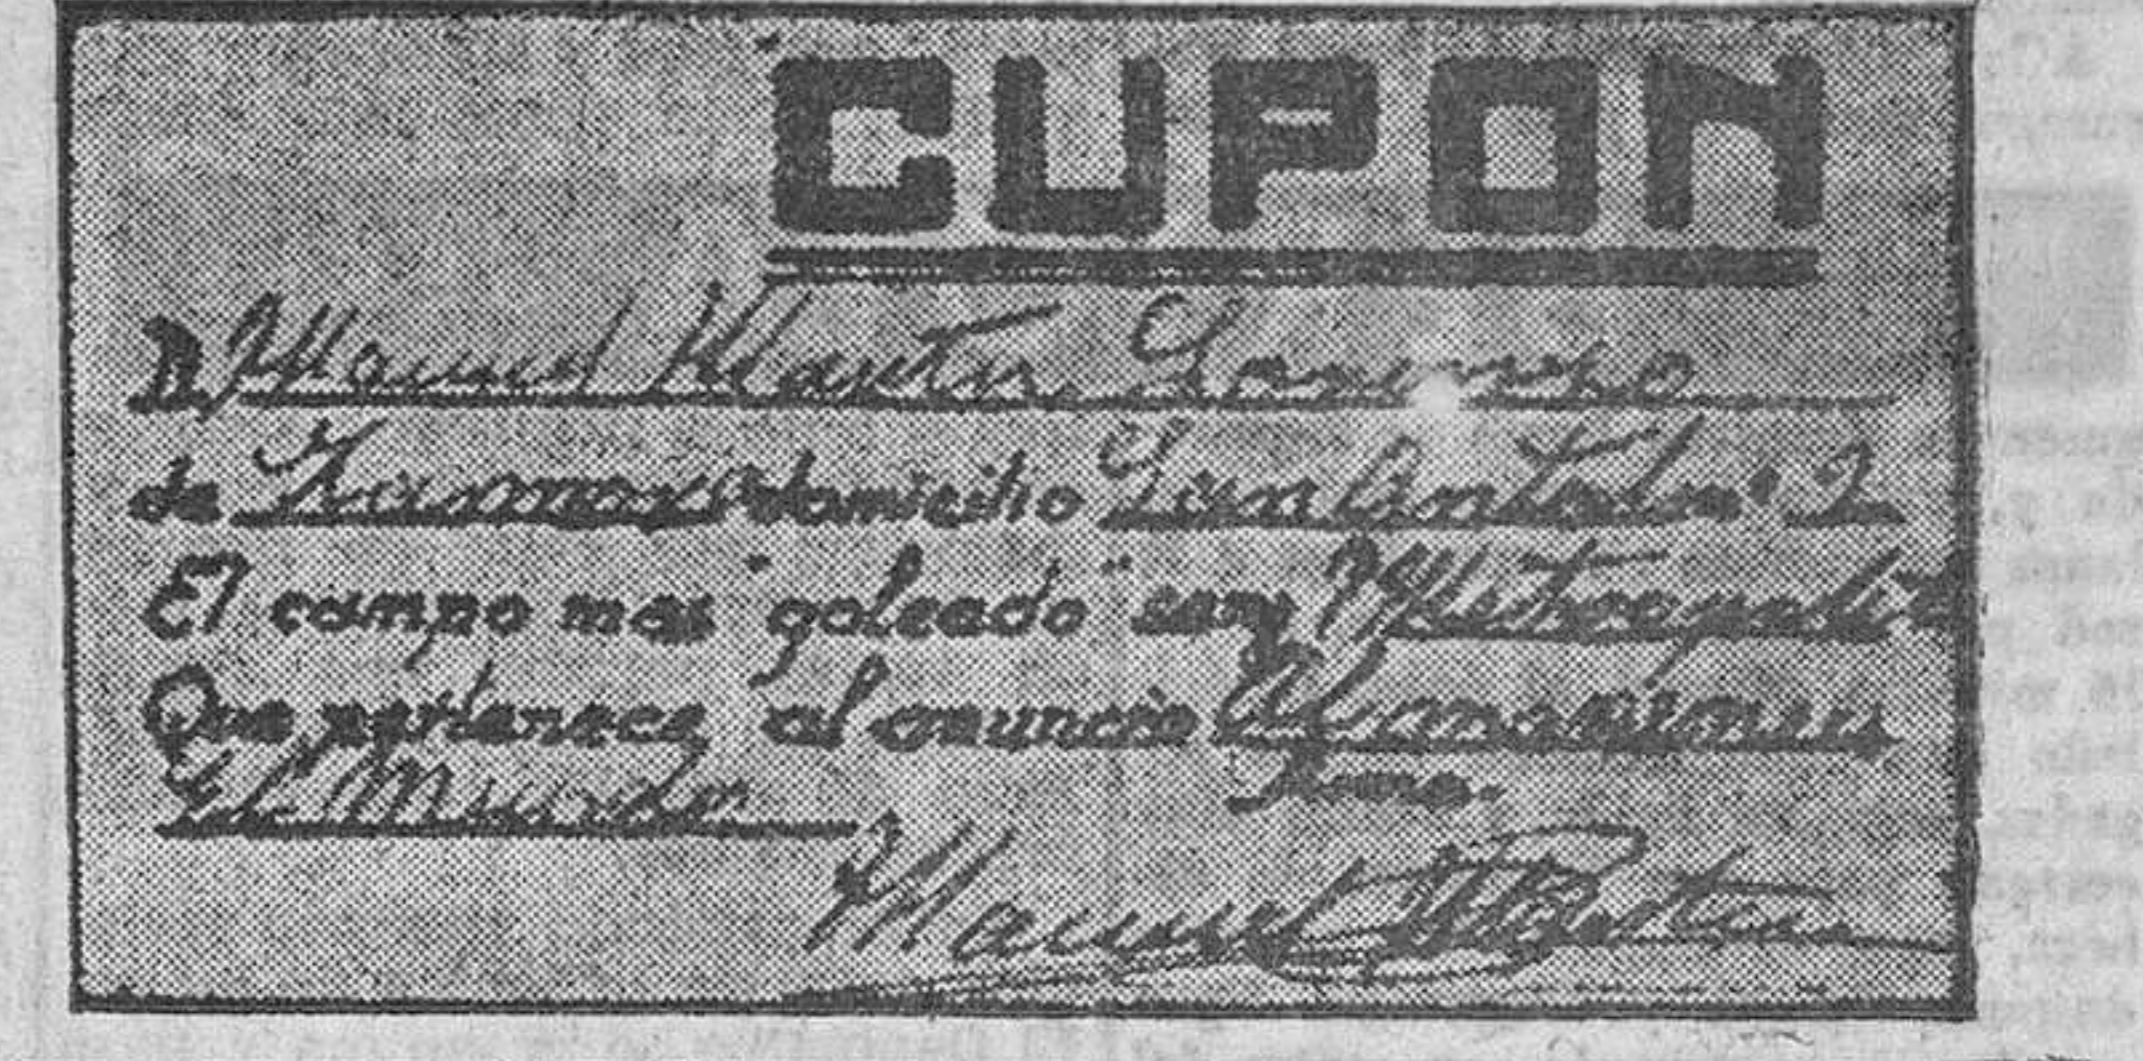 CUPON
D. Manuel Martin
de Zamora domicilio San Antolin 2
El campo mas "goleado" sera Metropolit
Que pertenece al anuncio Almacenes
El Mundo
Manuel Martin